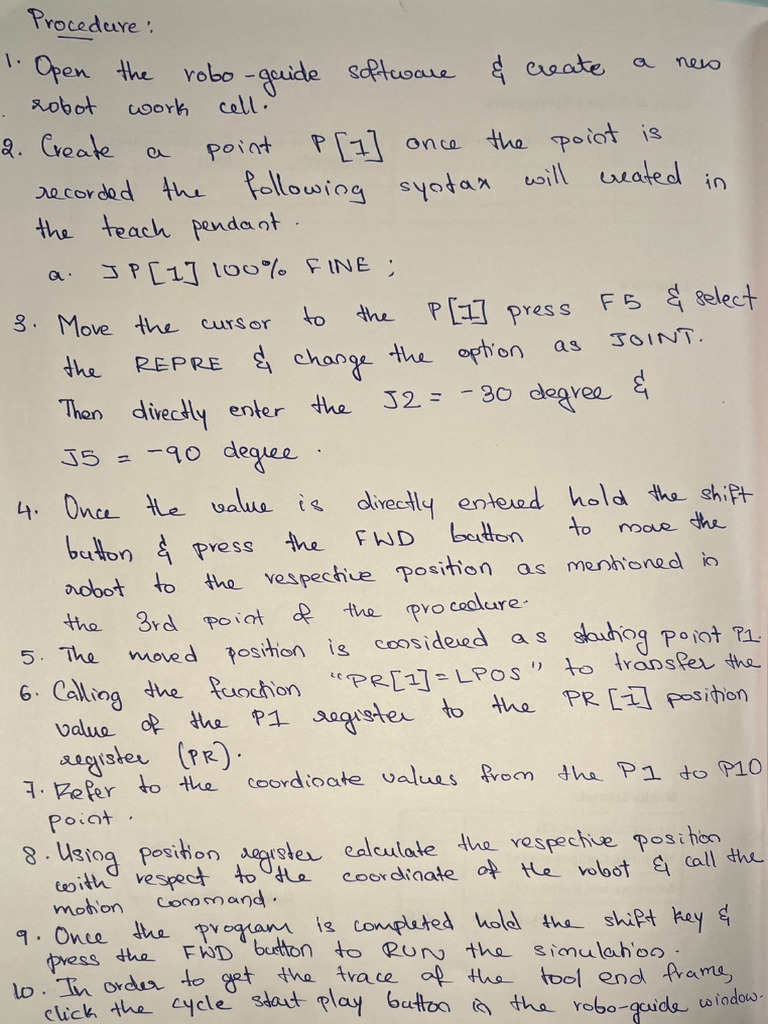 Procedure :
1. Open the robo-guide software & create a new
robot work cell.
2. Create a point P[1] once the point is
recorded the following syntax will created in
the teach pendant.
a. J P[1] 100% FINE ;
3. Move the cursor to the P[1] press F5 & select
the REPRE & change the option as JOINT.
Then directly enter the J2 = -30 degree &
J5 = -90 degree.
4. Once the value is directly entered hold the shift
button & press the FWD button to move the
robot to the respective position as mentioned in
the 3rd point of the procedure.
5. The moved position is considered as starting point P1.
6. Calling the function "PR[1]=LPOS" to transfer the
value of the P1 register to the PR[1] position
register (PR).
7. Refer to the coordinate values from the P1 to P10
point.
8. Using position register calculate the respective position
with respect to the coordinate of the robot & call the
motion command.
9. Once the program is completed hold the shift key &
press the FWD button to RUN the simulation.
10. In order to get the trace of the tool end frame,
click the cycle start play button in the robo-guide window.